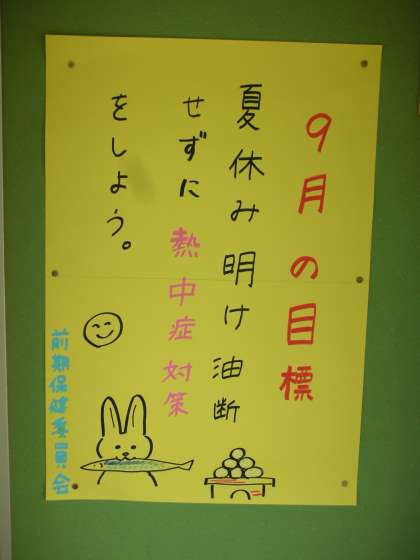 9月の目標
夏休み明け油断
せずに熱中症対策
をしよう。
前期保健委員会